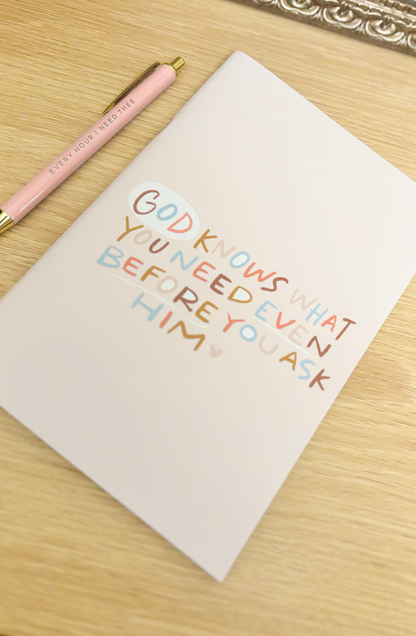 EVERY HOUR I NEED THEE
GOD KNOWS WHAT
YOU NEED EVEN
BEFORE YOU ASK
HIM